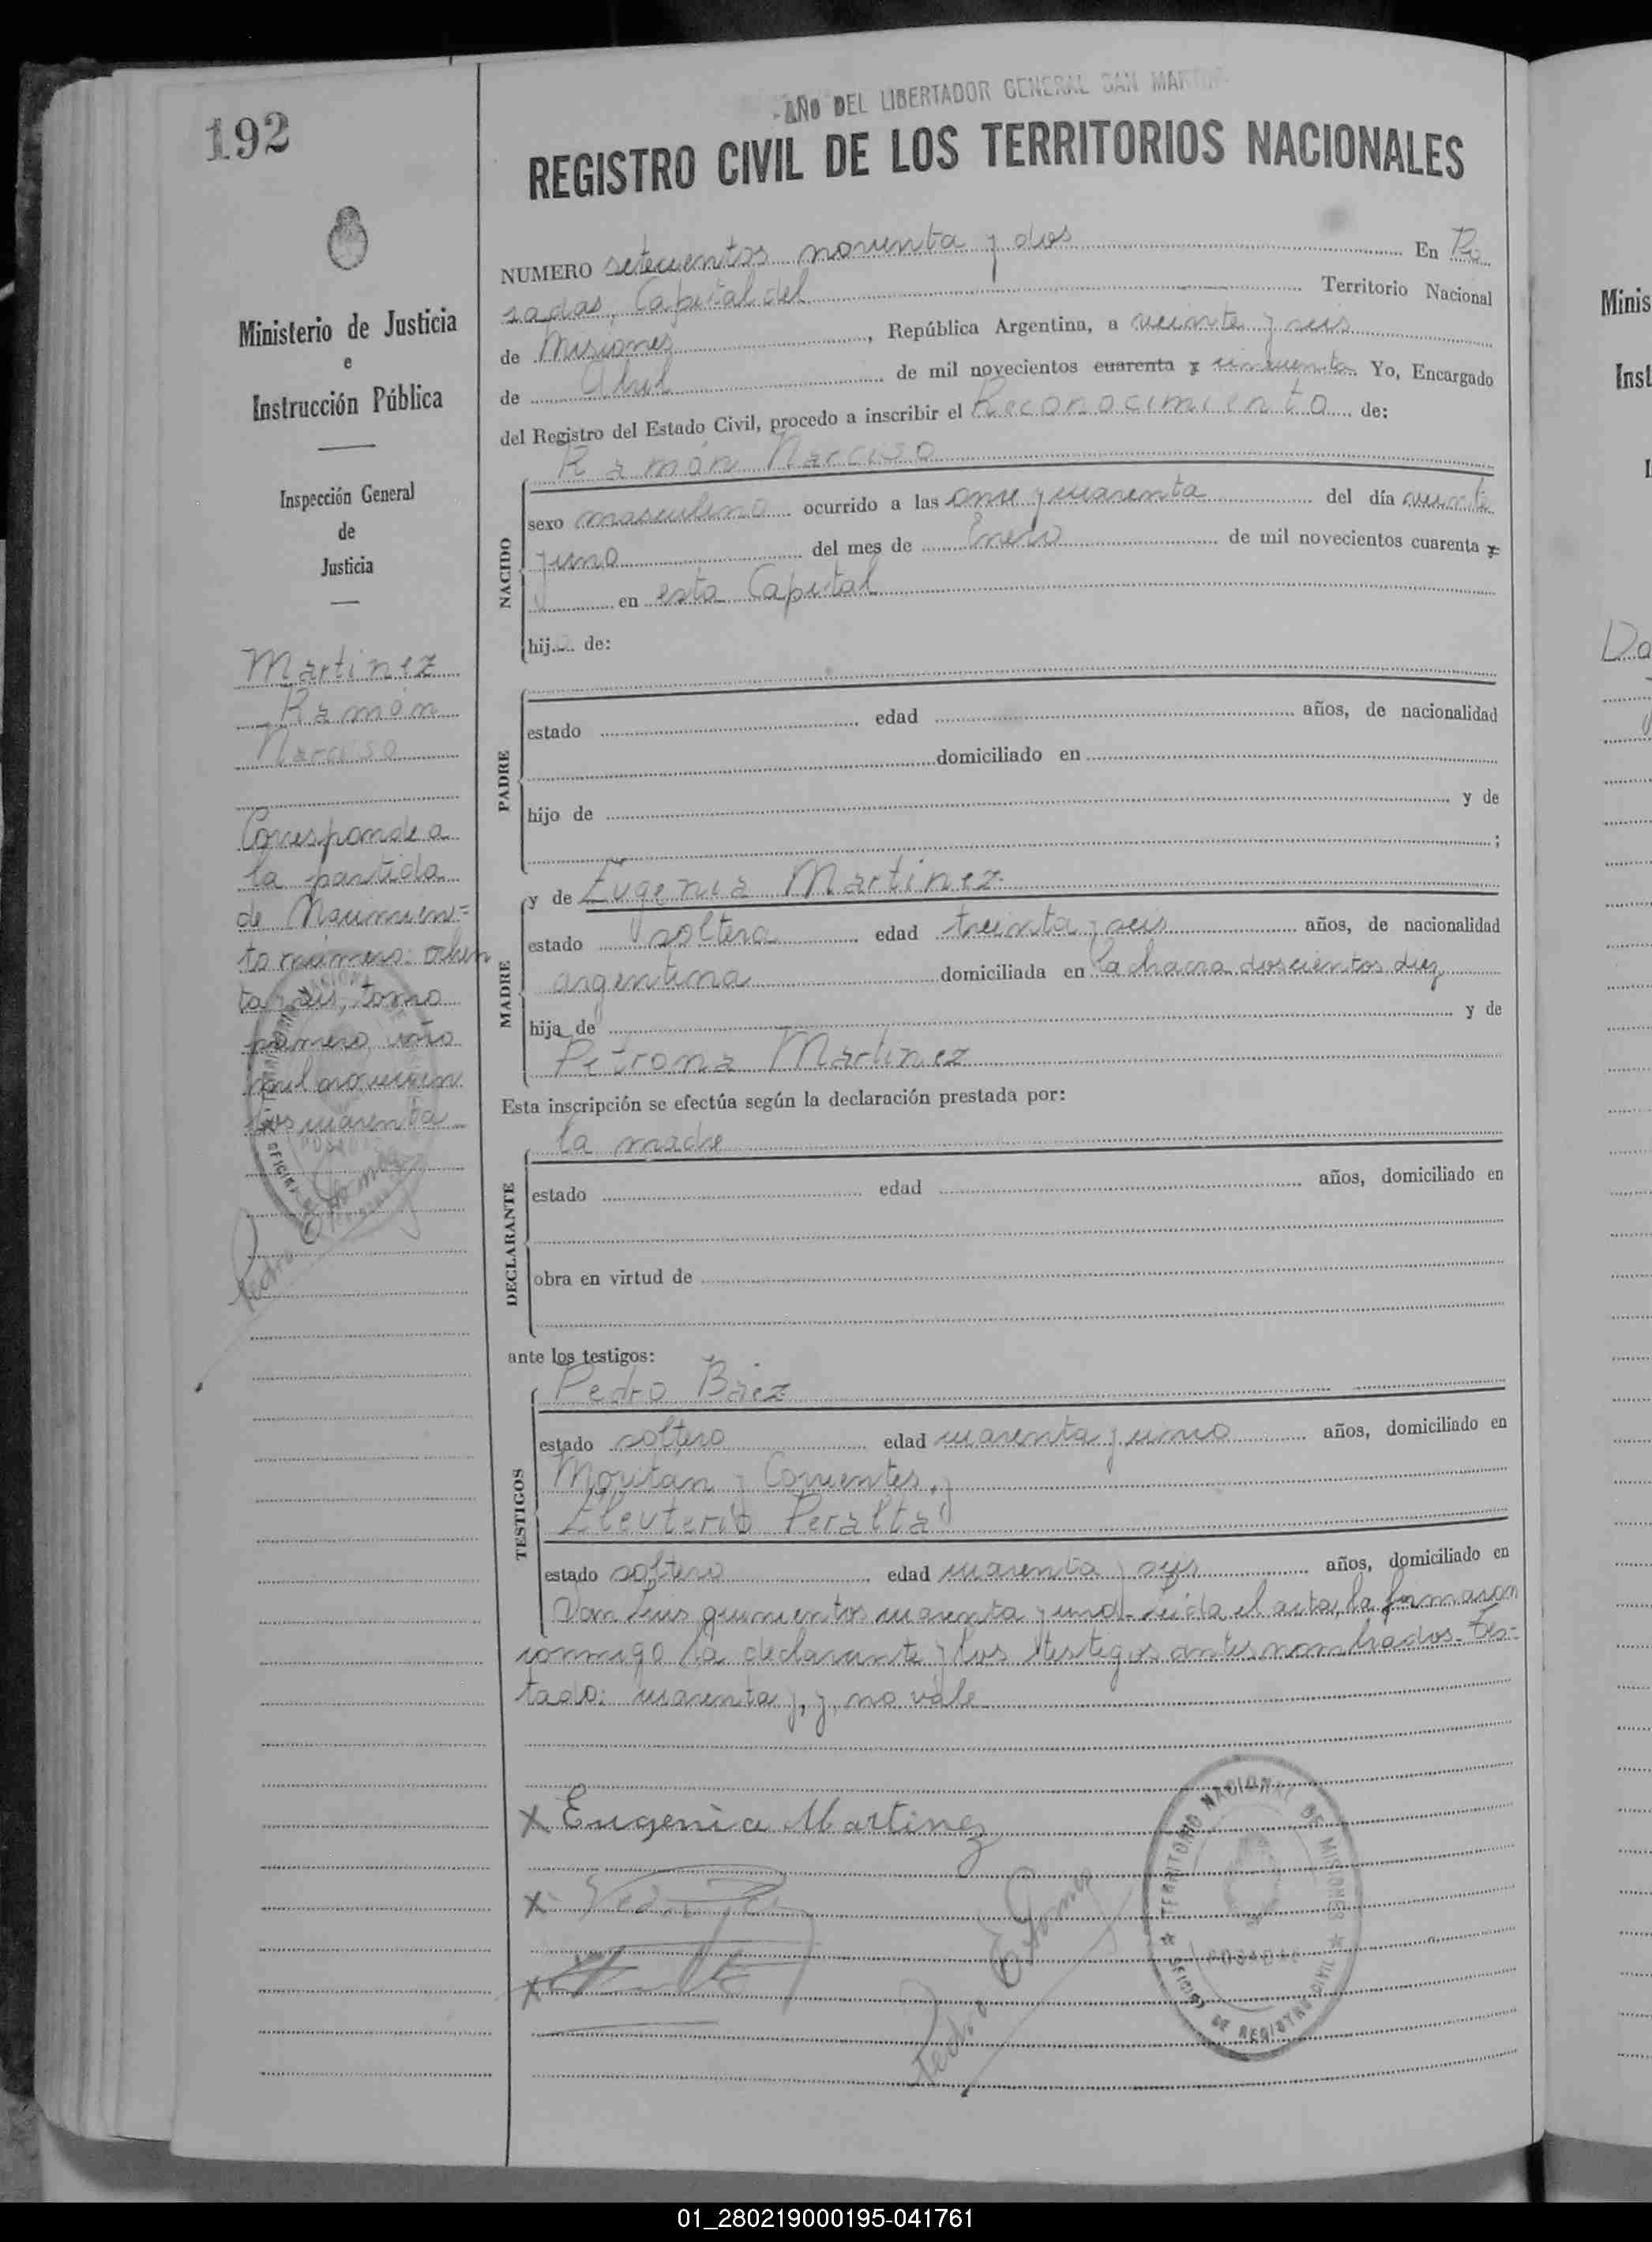 192
AÑO DEL LIBERTADOR GENERAL SAN MARTIN
REGISTRO CIVIL DE LOS TERRITORIOS NACIONALES
Ministerio de Justicia
e
Instrucción Pública
Inspección General
de
Justicia
Martinez
Ramón
Narciso
Corresponde a
la partida
de Nacimien=
to número: ochen
ta y seis, tomo
primero, año
mil novecien
tos cuarenta
NUMERO setecientos noventa y dos En Po
sadas, Capital del Territorio Nacional
de Misiones, República Argentina, a veinte y seis
de Abril de mil novecientos cuarenta y cincuenta Yo, Encargado
del Registro del Estado Civil, procedo a inscribir el Reconocimiento de:
Ramón Narciso
NACIDO
sexo masculino ocurrido a las once y cuarenta del día veinte
y uno del mes de Enero de mil novecientos cuarenta y
en esta Capital
hijo de:
PADRE
estado edad años, de nacionalidad
domiciliado en
hijo de y de
;
MADRE
y de Eugenia Martinez
estado soltera edad treinta y seis años, de nacionalidad
argentina domiciliada en la chacra doscientos diez
hija de y de
Petrona Martinez
Esta inscripción se efectúa según la declaración prestada por:
la madre
DECLARANTE
estado edad años, domiciliado en
obra en virtud de
ante los testigos:
TESTIGOS
Pedro Báez
estado soltero edad cuarenta y uno años, domiciliado en
Moritán y Corrientes, y
Eleuterio Peralta
estado soltero edad cuarenta y seis años, domiciliado en
San Luis quinientos cuarenta y uno. Leída el acta, la firmaron
conmigo la declarante y los testigos antes nombrados. Tes=
tado: cuarenta y, y, no vale
x Eugenia Martinez
x
x
TERRITORIO NACIONAL DE MISIONES
OFICINA DE REGISTRO CIVIL
POSADAS
Minis
Inst
01_280219000195-041761